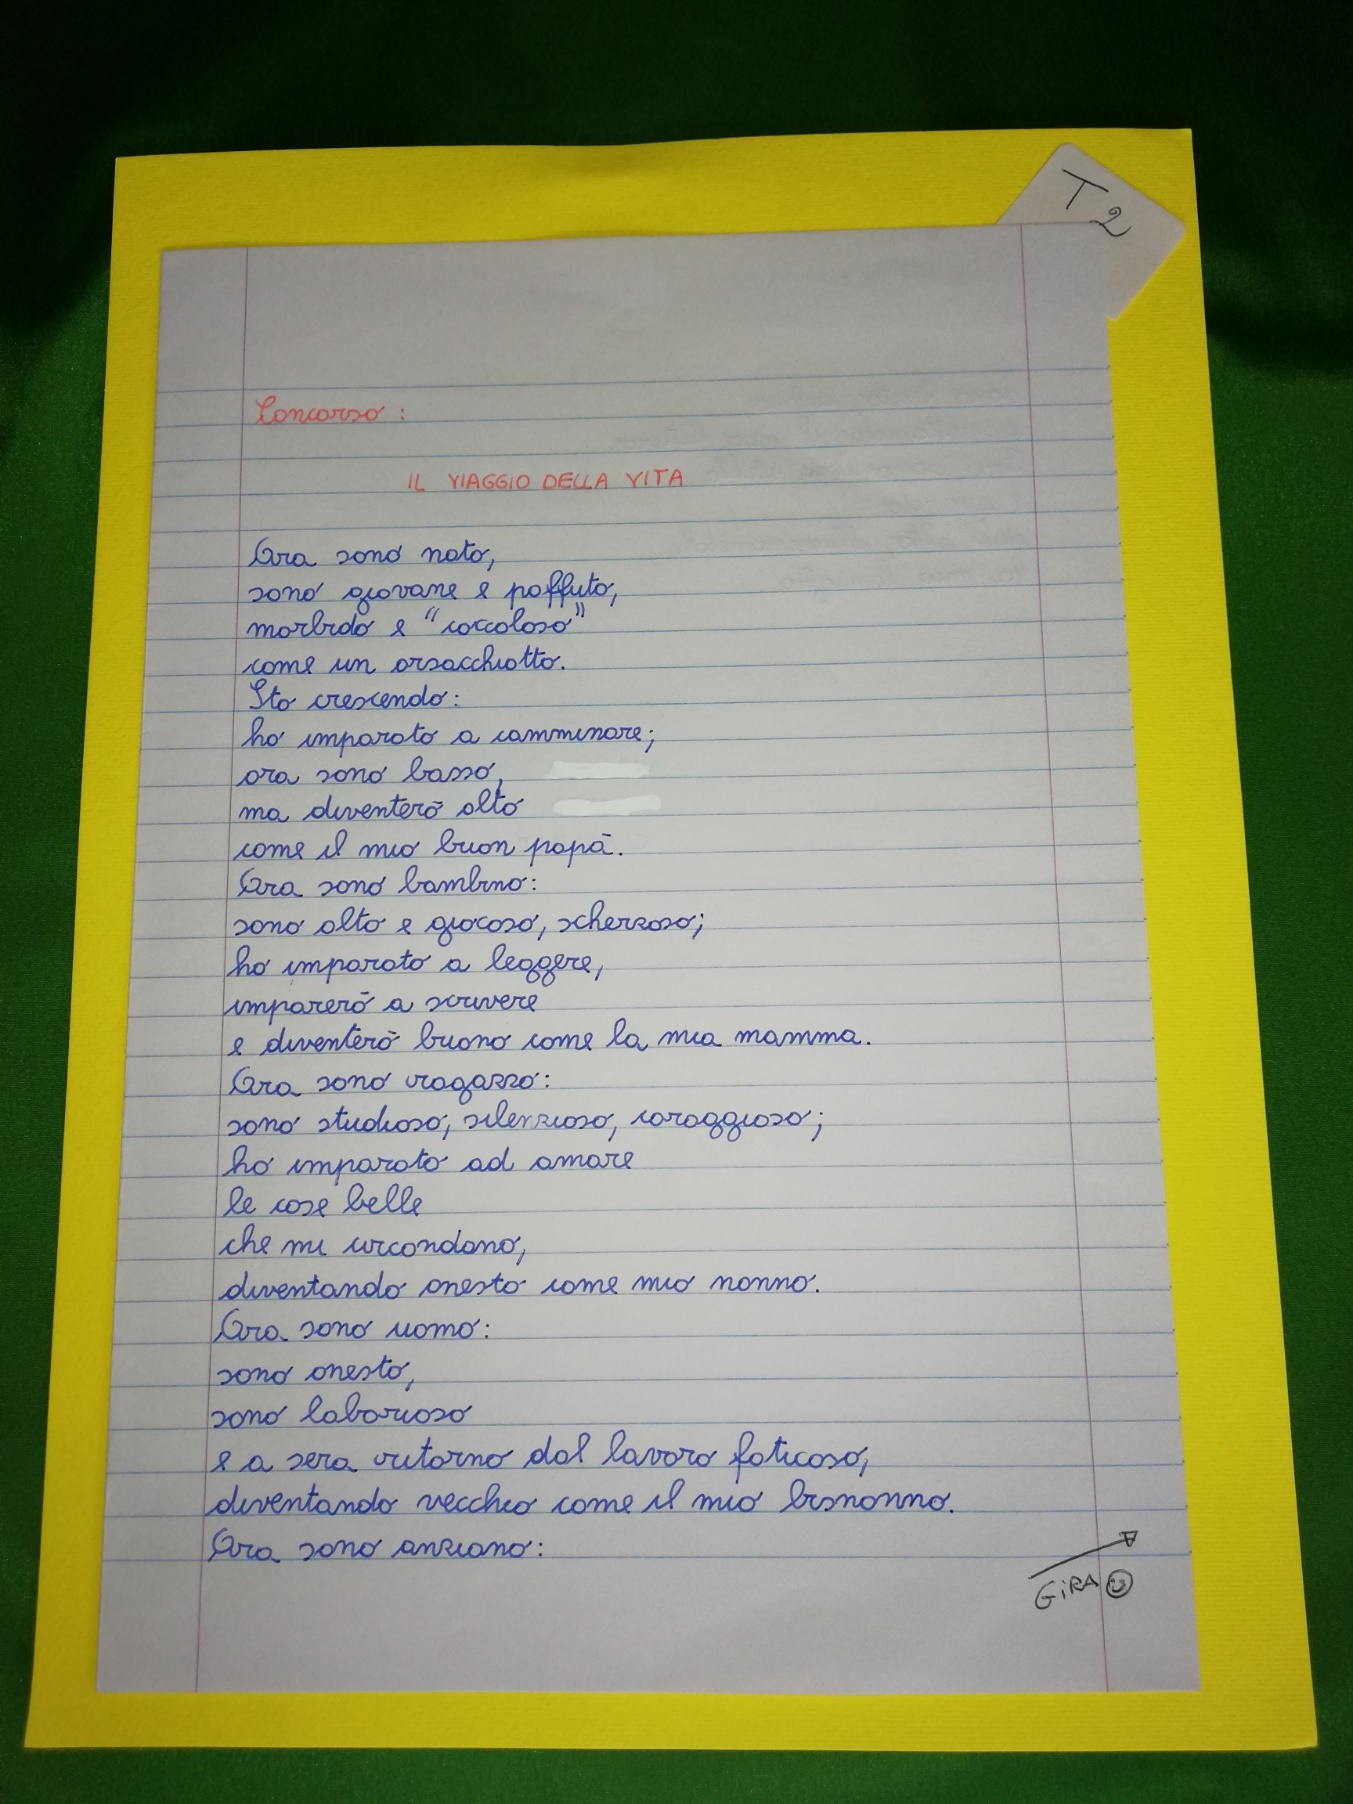 T2
Concorso:
IL VIAGGIO DELLA VITA
Ora sono nato,
sono giovane e paffuto,
morbido e "coccoloso"
come un orsacchiotto.
Sto crescendo:
ho imparato a camminare;
ora sono basso,
ma diventerò alto
come il mio buon papà.
Ora sono bambino:
sono alto e giocoso, scherzoso;
ho imparato a leggere,
imparerò a scrivere
e diventerò buono come la mia mamma.
Ora sono ragazzo:
sono studioso, silenzioso, coraggioso;
ho imparato ad amare
le cose belle
che mi circondano,
diventando onesto come mio nonno.
Ora sono uomo:
sono onesto,
sono laborioso
e a sera ritorno dal lavoro faticoso,
diventando vecchio come il mio bisnonno.
Ora sono anziano:
GIRA